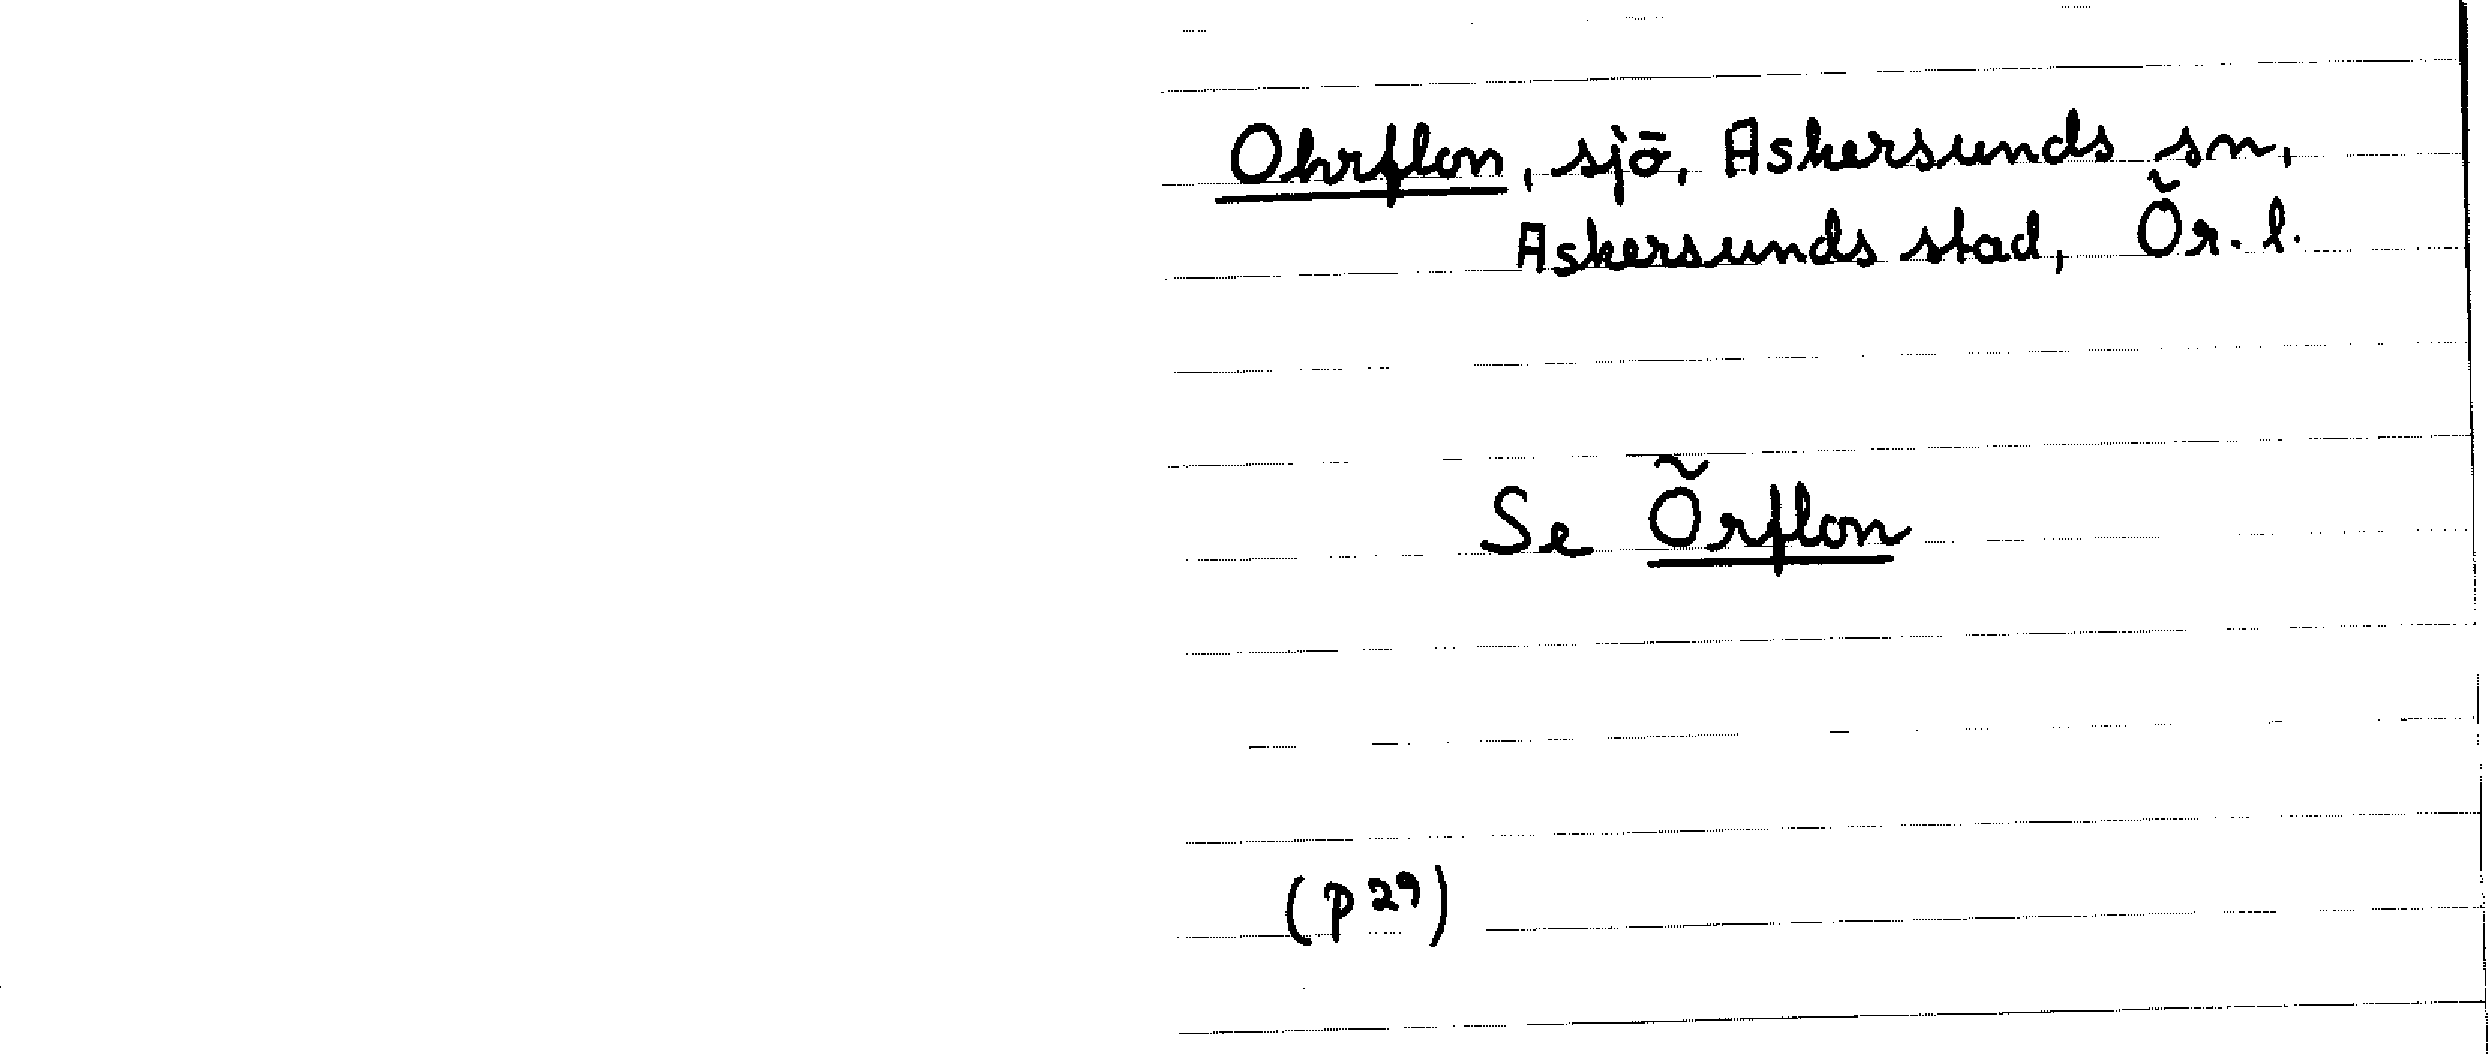 Ohrflon, sjö, Askersunds sn,
Askersunds stad, Ör. l.
Se Örflon
(p 29)